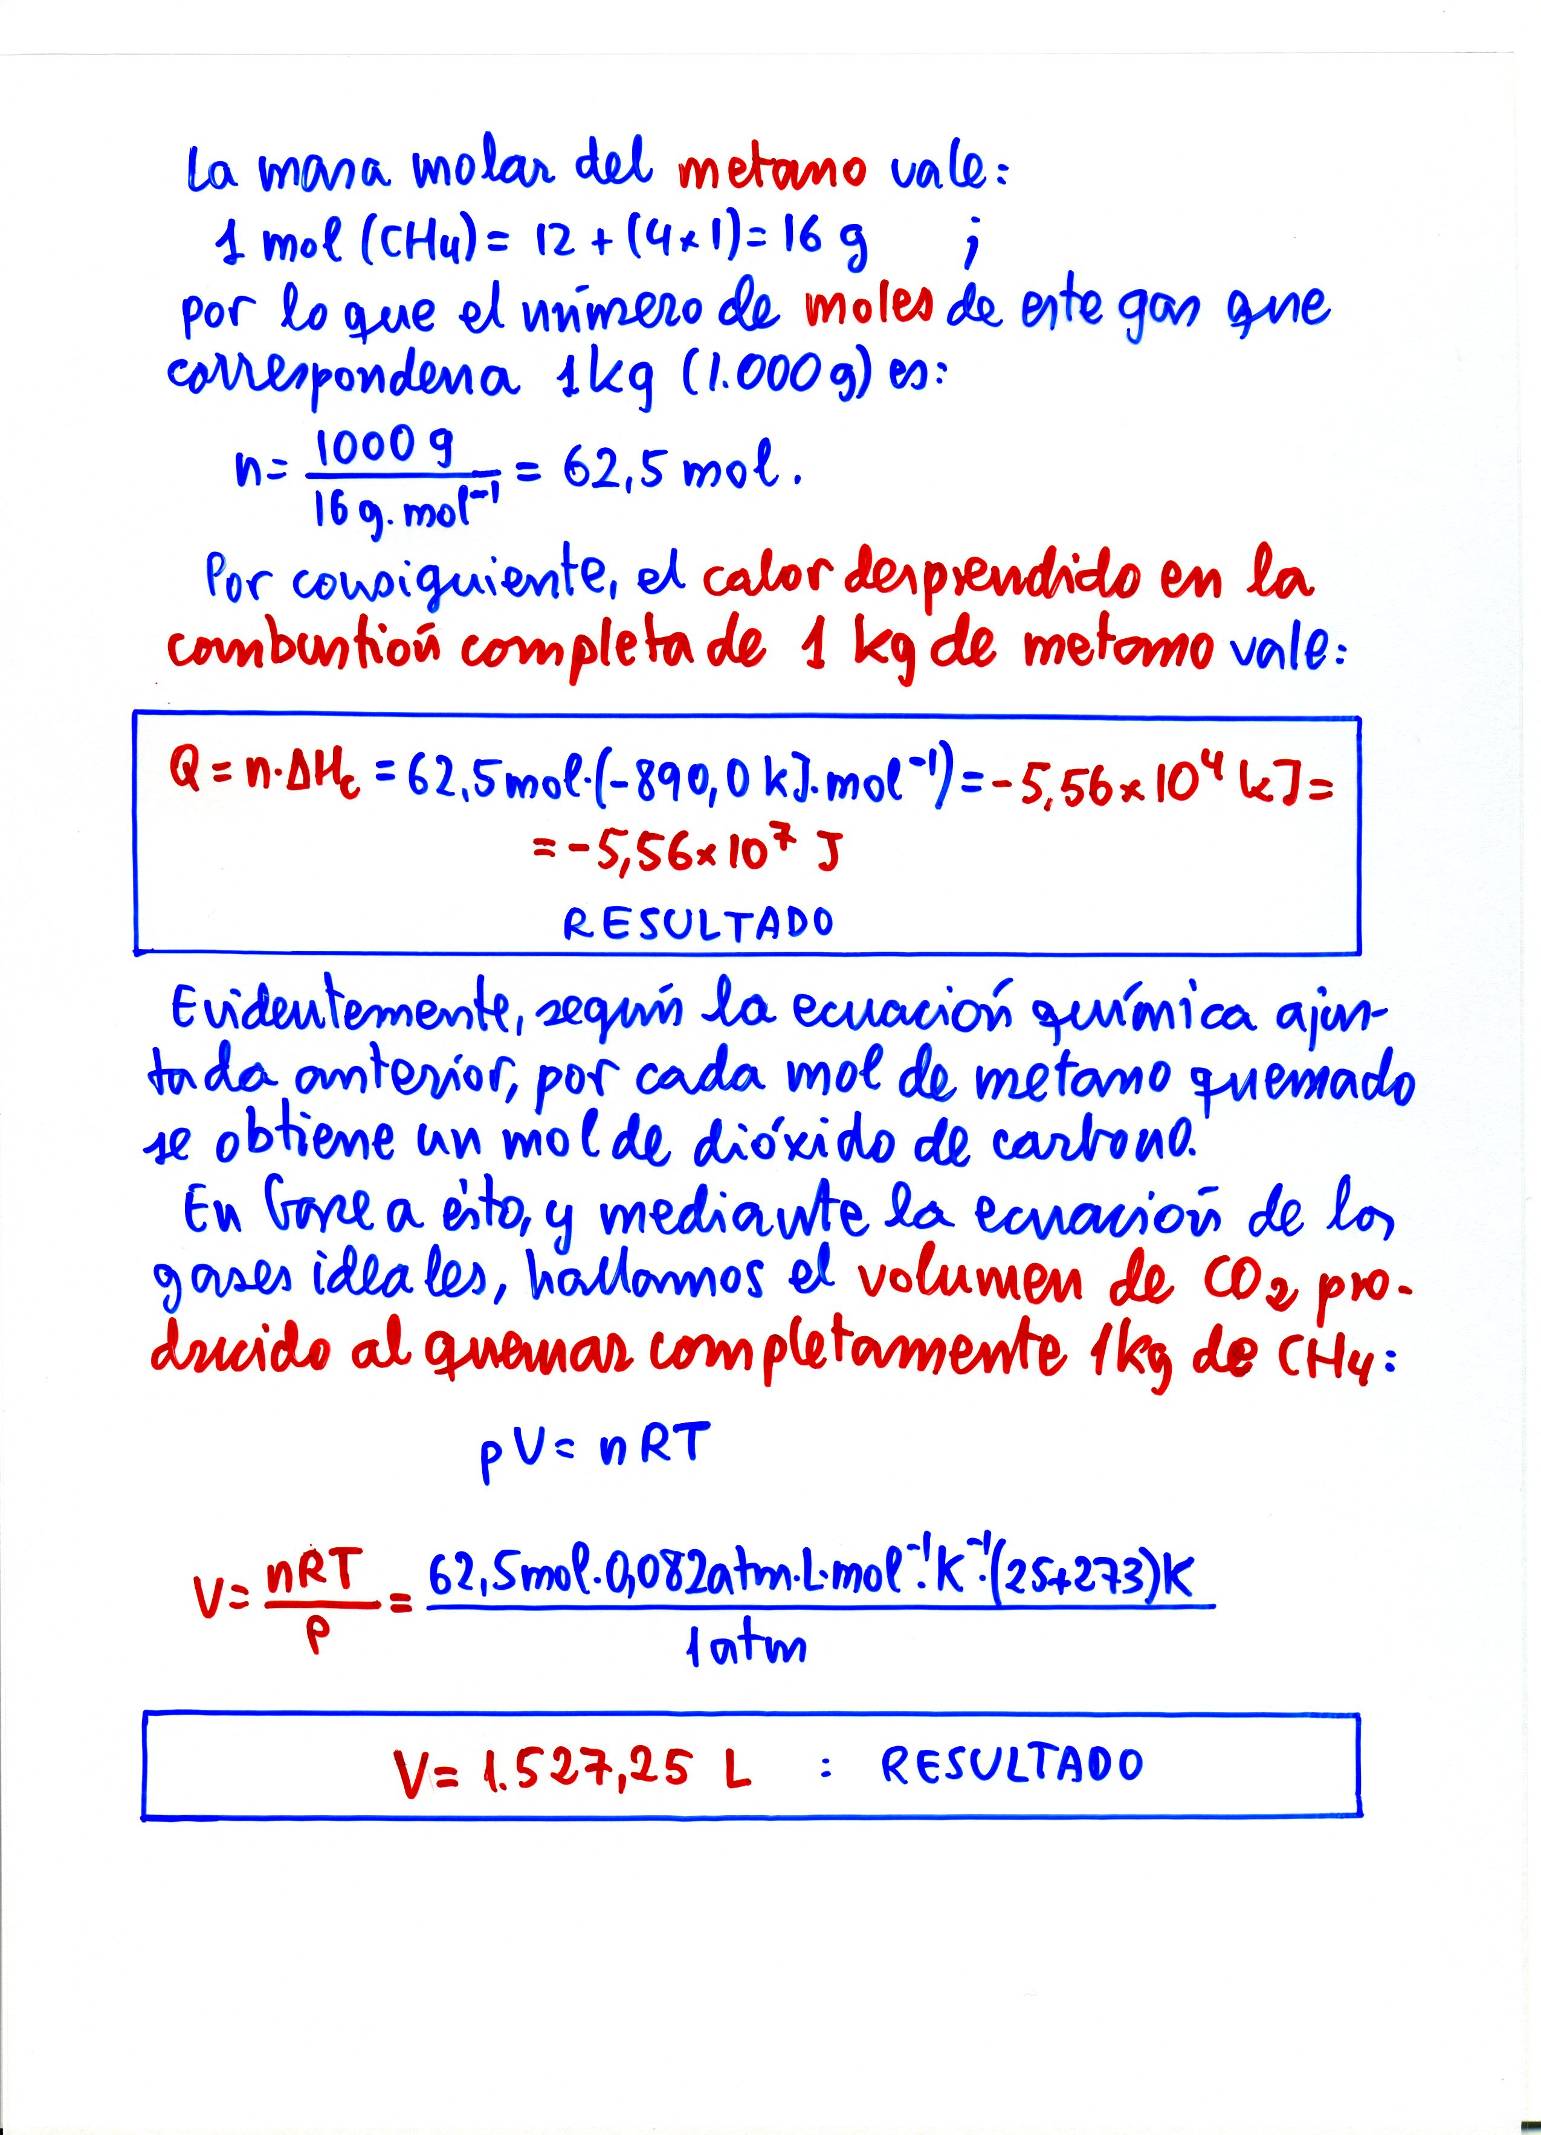 La masa molar del metano vale:
1 mol (CH₄) = 12 + (4×1) = 16 g ;
por lo que el número de moles de este gas que
corresponden a 1 kg (1.000 g) es:
n = 1000 g / 16 g.mol⁻¹ = 62,5 mol.
Por consiguiente, el calor desprendido en la
combustión completa de 1 kg de metano vale:
Q = n·ΔHc = 62,5 mol·(-890,0 kJ.mol⁻¹) = -5,56×10⁴ kJ =
= -5,56×10⁷ J
RESULTADO
Evidentemente, según la ecuación química ajus-
tada anterior, por cada mol de metano quemado
se obtiene un mol de dióxido de carbono.
En base a ésto, y mediante la ecuación de los
gases ideales, hallamos el volumen de CO₂ pro-
ducido al quemar completamente 1 kg de CH₄:
pV = nRT
V = nRT / p = 62,5 mol·0,082 atm·L·mol⁻¹·K⁻¹·(25+273)K / 1 atm
V = 1.527,25 L : RESULTADO